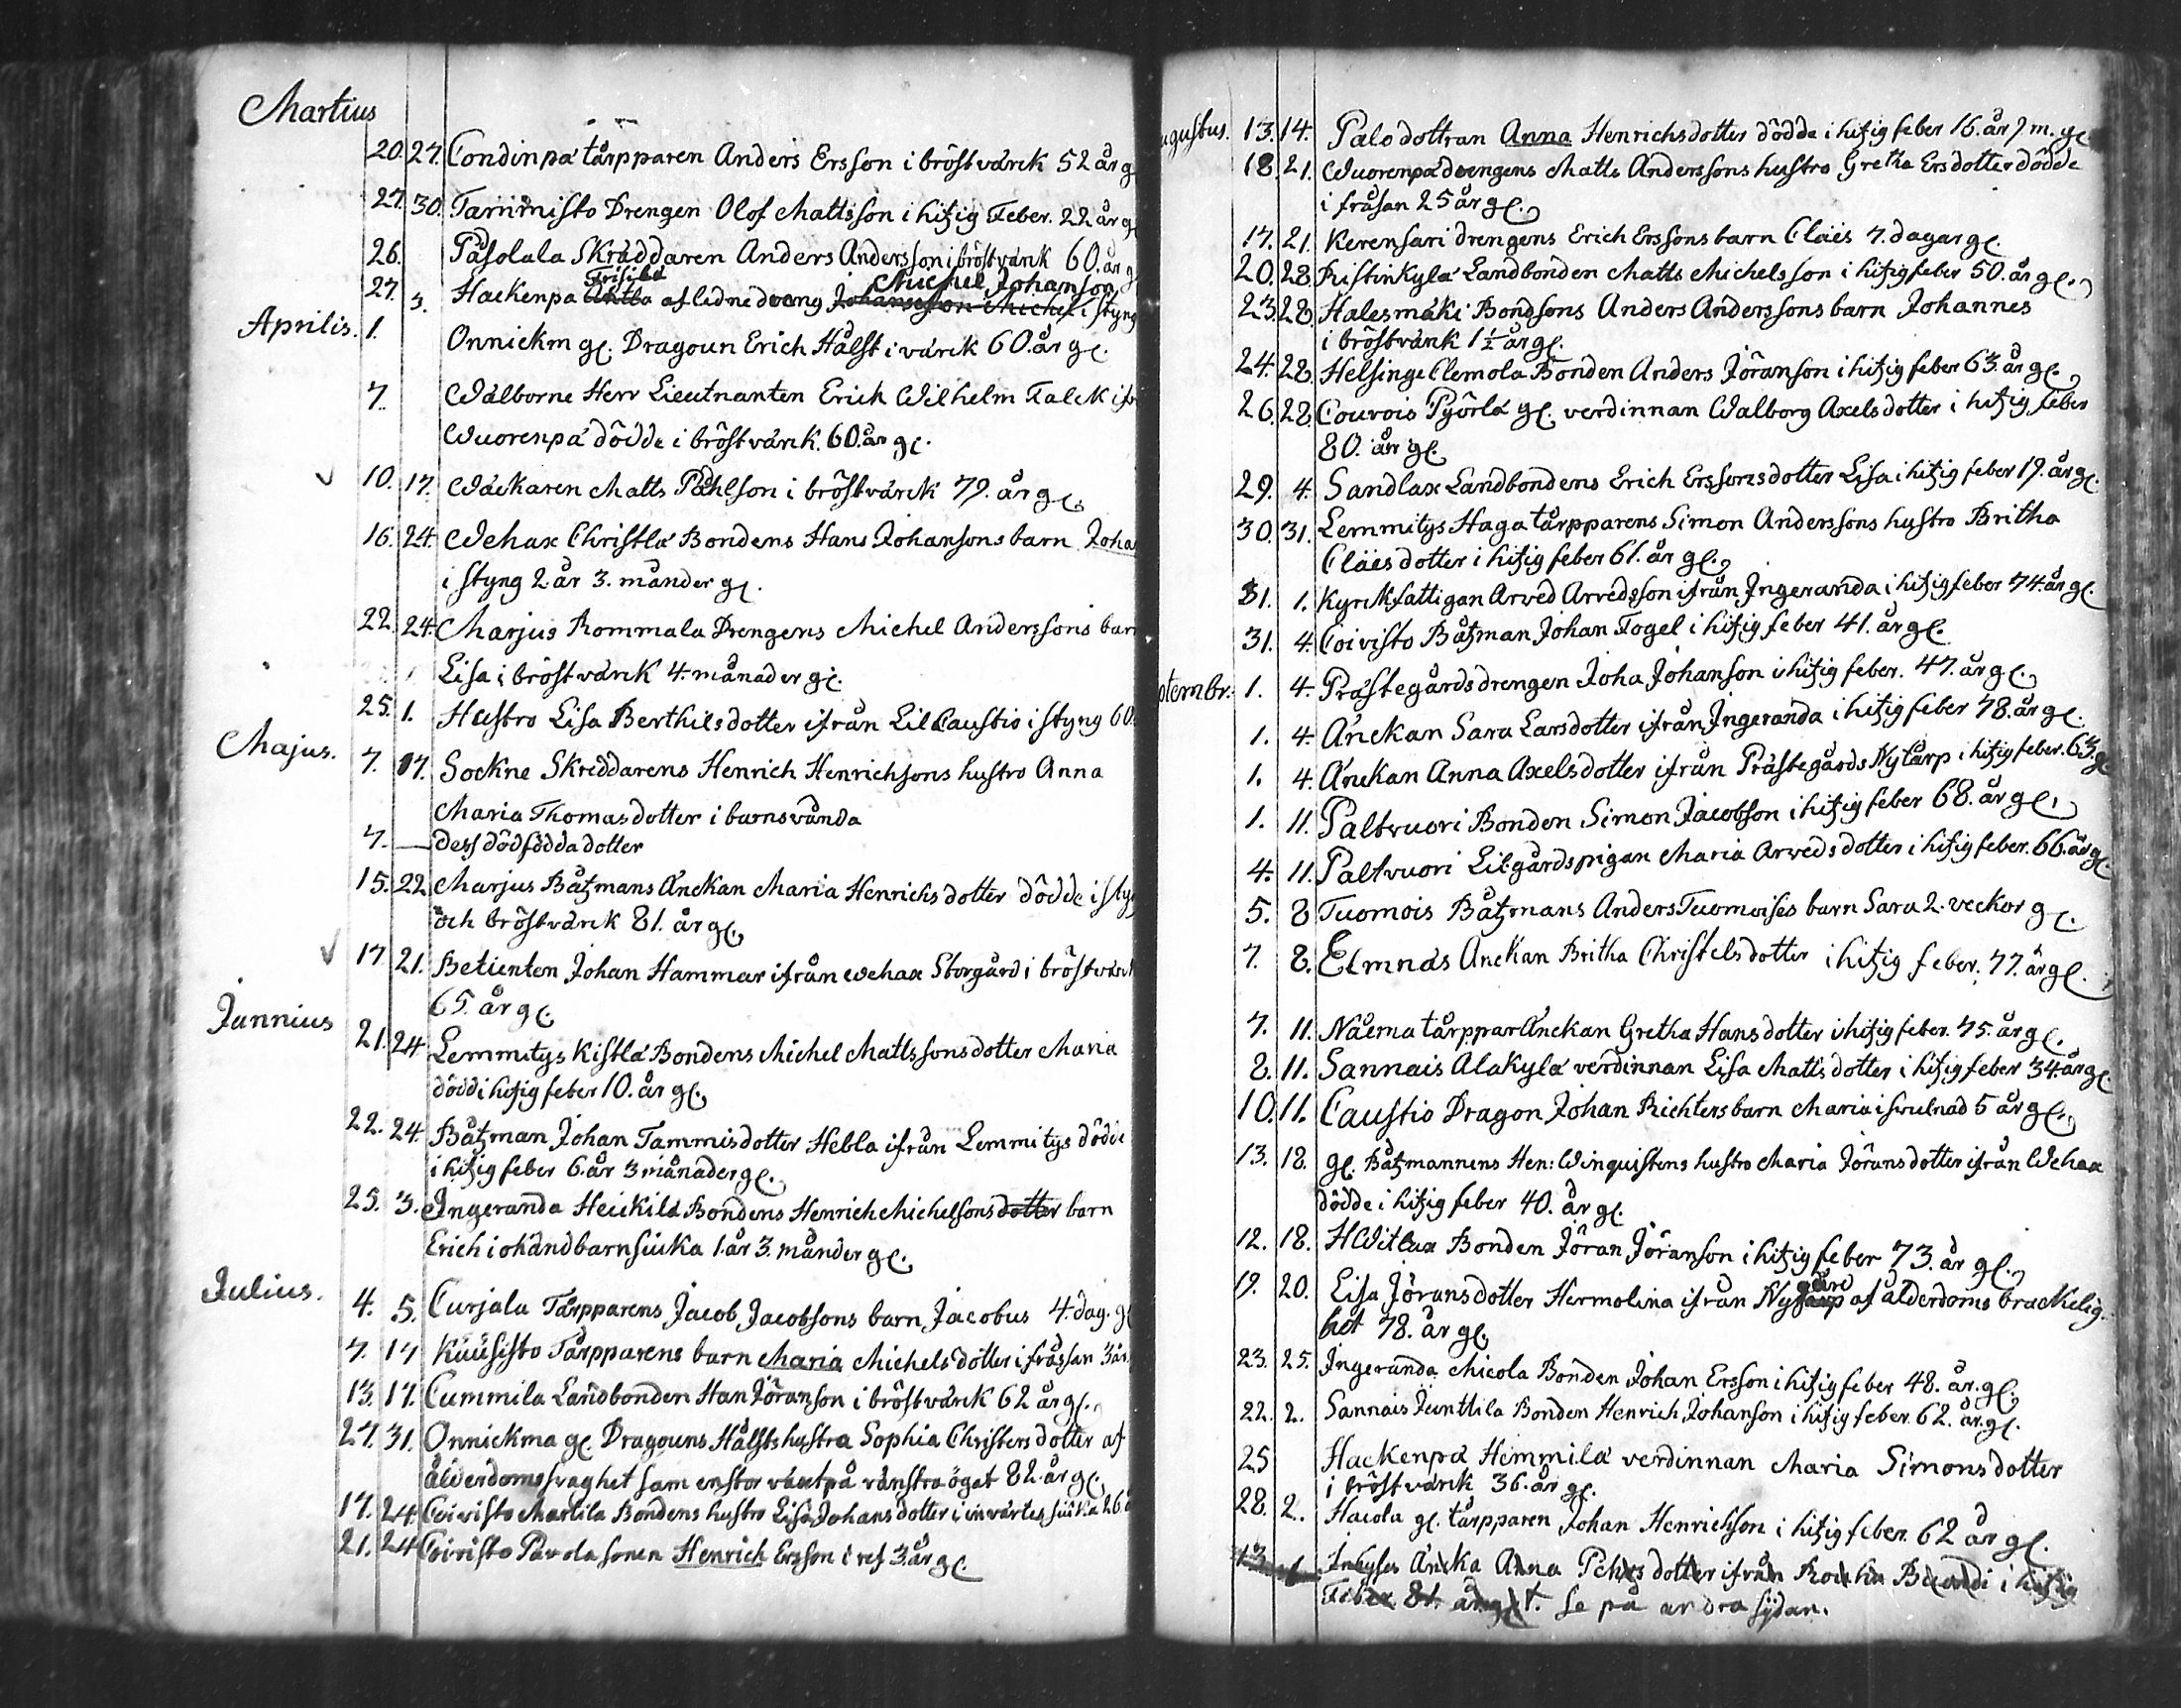 Martius
20. 27. Condinpä tårpparen Anders Ersson i bröstvärck 52 år g
27. 30. Tammisto Drengen Olof Mattsson i hitzig Feber. 22 år g
26. Påsolala Skräddaren Anders Andersson i bröstvärck 60. år g
Frisilä Michel Johanson
27. 3. Hackenpä Antla aflednedreng Johansson Michel i styng
Aprilis. 1. Onnickm gl. Dragoun Erich Hålst i värck 60. år gl.
7. Wälborne Herr Lieutnanten Erick Wilhelm Falck ifr
Wuorenpä dödde i bröstvärck. 60. år gl.
10. 17. Wäckaren Matts Påhlson i bröstvärck 79. år gl.
16. 24. Wehax Christlä Bondens Hans Johansons barn Joha
i styng 2. år 3. månder gl.
22. 24. Marjus Rommala Drengens Michel Anderssons barn
Lisa i bröstvärck 4. månader gl.
25. 1. Hustro Lisa Berthilsdotter ifrån Lill Caustio i styng 60.
Majus. 7. 17. Sockne Skreddarens Henrich Henrichsons hustro Anna
Maria Thomasdotter i barnsvånda
7. — dess dödfödda dotter
15. 22. Marjus Båtzmans Änckan Maria Henrichsdotter dödde i sty
och bröstvärck 81. år gl.
17 21. Betienten Johan Hammar ifrån Wehax Storgård i bröstvärck
65. år gl.
Junnius 21. 24 Lemmitys Kistlä Bondens Michel Mattssons dotter Maria
dödd i hitzig feber 10. år gl.
22. 24. Båtzman Johan Tammis dotter Hebla ifrån Lemmitys dödde
i hitzig feber 6. år 3 månader gl.
25. 3. Ingeranda Heickilä Bondens Henrich Michelsons dotter barn
Erich i okänd barnsiuka 1. år 3. månder gl.
Julius. 4. 5. Curjala Tårpparens Jacob Jacobsons barn Jacobus 4. dag. gl
7. 17 Kuusisto Tårpparens barn Maria Michelsdotter i fråssan 3 år.
13. 17. Cummila Landbonden Han Jöranson i bröstvärck 62 år gl.
27. 31. Onnickma gl. Dragouns Hålsts hustra Sophia Christersdotter af
ålderdomsswaghet sam en stor växt på vänstra ögat 82. år gl.
17. 24. Coivisto Marttila Bondens hustro Lisa Johansdotter i invärtes siuka 26
21. 24 Coivisto Pavola sonen Henrich Ersson i ref 3. år gl.
ugustus. 13. 14. Palo dottran Anna Henrichsdotter dödde i hitzig feber 16. år 7 m. gl
18. 21. Wuorenpä drengens Matts Anderssons hustro Gretha Ersdotter dödde
i fråsan 25 år gl.
17. 21. Kerensari drengens Erich Erssons barn Claës 7. dagar gl.
20. 28. Fristinkylä Landbonden Matts Michelsson i hitzig feber 50. år gl.
23. 28. Halesmäki Bondsons Anders Anderssons barn Johannes
i bröstvärck 1 1/2 år gl.
24. 28. Helsinge Clemola Bonden Anders Jöranson i hitzig feber 63. år gl.
26. 28. Courois Pyörlä gl. verdinnan Walborg Axelsdotter i hitzig feber
80. år gl.
29. 4. Sandlax Landbondens Erich Erssons dotter Lisa i hitzig feber 19. år gl.
30. 31. Lemmitys Haga tårpparens Simon Anderssons hustro Britha
Cläesdotter i hitzig feber 61. år gl.
31. 1. Kyrckfattigan Arved Arvedsson ifrån Ingeranda i hitzig feber 74. år gl.
31. 4. Coivisto Båtzman Johan Fogel i hitzig feber 41. år gl.
ptembr. 1. 4. Prästegårds drengen Joha Johanson i hitzig feber. 47. år gl.
1. 4. Änckan Sara Larsdotter ifrån Ingeranda i hitzig feber 78. år gl.
1. 4. Änckan Anna Axelsdotter ifrån Prästegårds Nytårp i hitzig feber. 63. gl
1. 11. Paltvuori Bonden Simon Jacobson i hitzig feber 68. år gl.
4. 11. Paltvuori Lilgårds pigan Maria Arvedsdotter i hitzig feber. 66. år gl.
5. 8 Tuomois Båtzmans Anders Tuomoises barn Sara 2. veckor gl.
7. 8. Elmnäs Änckan Britha Christelsdotter i hitzig feber. 77. år gl.
7. 11. Näema tårppar Änckan Gretha Hansdotter i hitzig feber. 75. år gl.
8. 11. Sannais Alakylä verdinnan Lisa Mattsdotter i hitzig feber 34. år gl.
10. 11. Caustio Dragon Johan Richters barn Maria i svulnad 5 år gl.
13. 18. gl. Båtzmannens Hen: Winquistens hustro Maria Jöransdotter ifrån Wehax
dödde i hitzig feber 40. år gl.
12. 18. HWitlax Bonden Jöran Jöranson i hitzig feber 73. år gl.
gård
19. 20. Lisa Jöransdotter Hermolina ifrån Nytårp af ålderdoms bräckelig
het 78. år gl.
23. 25. Ingeranda Micola Bonden Johan Ersson i hitzig feber 48. år. gl.
22. 2. Sannais Junttila Bonden Henrich Johanson i hitzig feber. 62. år. gl.
25 Hackenpä Hemmilä verdinnan Maria Simonsdotter
i bröstvärck 36. år gl.
28. 2. Haiola gl. tårpparen Johan Henrichson i hitzig feber. 62 år gl.
13 Änka Anna Pehrs dotter ifrån i hitzig
Feber 81. år gl. se på andra sydan.